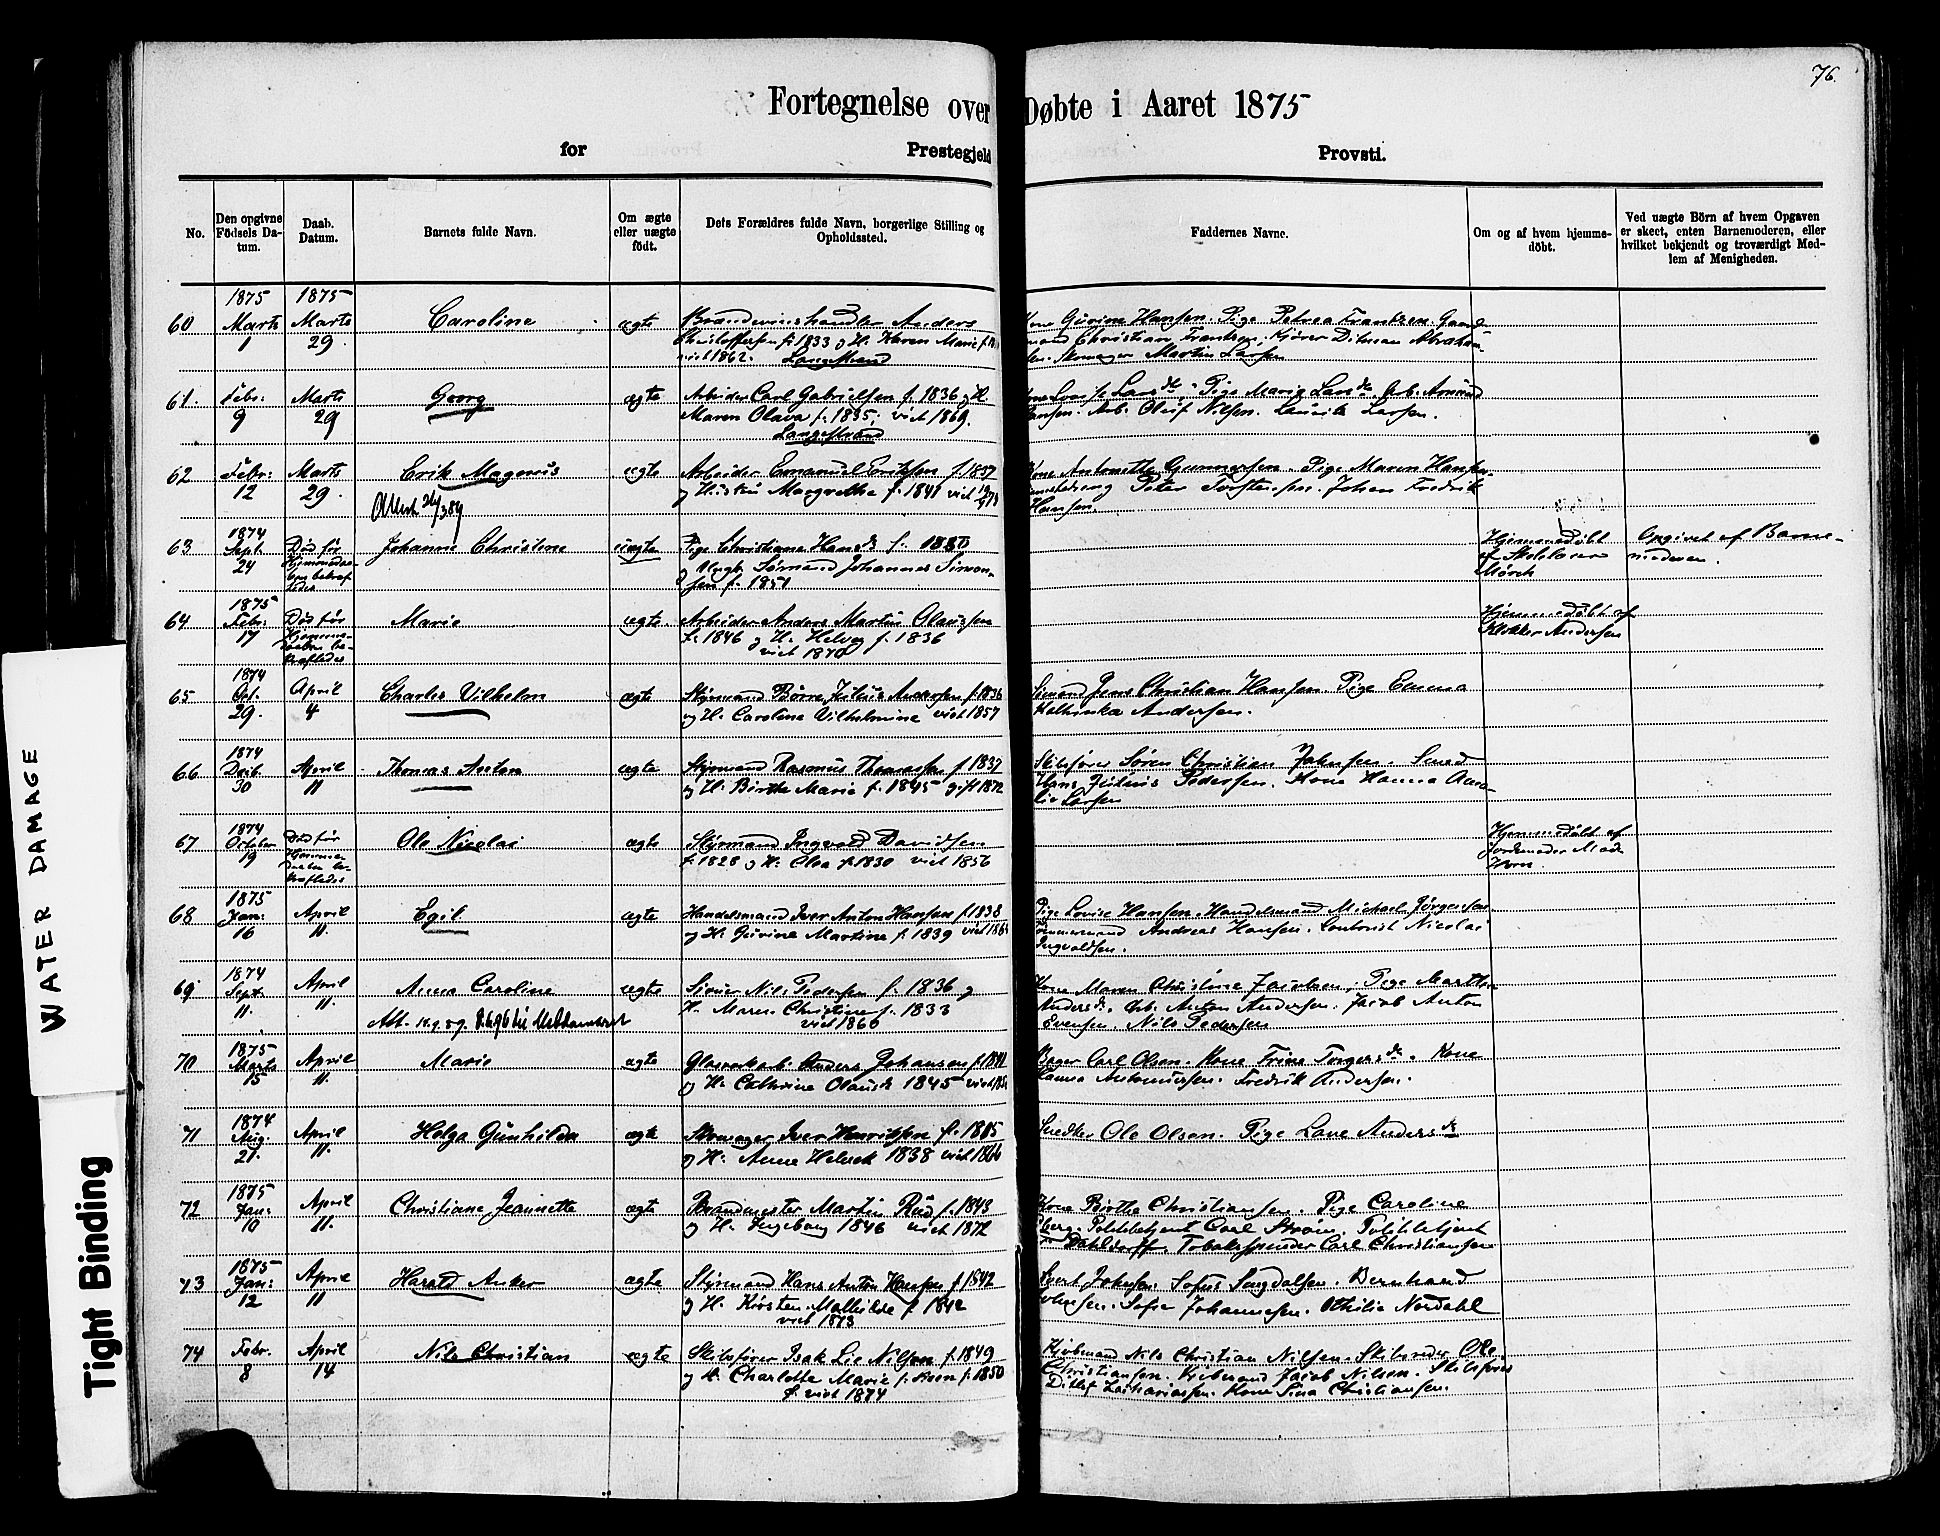 76.
Fortegnelse over Døbte i Aaret 1875
for Prestegjeld Provsti.
No.
Den opgivne Födsels Da-
tum.
Daab.
Datum.
Barnets fulde Navn.
Om ægte
eller uægte
födt.
Dets Forældres fulde Navn, borgerlige Stilling og
Opholdssted.
Faddernes Navne.
Om og af hvem hjemme-
döbt.
Ved uægte Börn af hvem Opgaven
er skeet, enten Barnemoderen, eller
hvilket bekjendt og troværdigt Med-
lem af Menigheden.
1875 1875
60 Marts 1 Marts 29. Caroline ægte Brændevinshandler Anders
Christoffersen f. 1833 og H. Karen Marie
viet 1862. Langestrand
Kone Gurine Hansen. Pige Petrea Frantzen. Gaard-
mand Christian Frantzen. Kjører Ditman Abraham-
sen. Skomager Martin Larsen
61. Febr. 9 Marts 29 Georg ægte Arbeider Carl Gabrielsen f. 1836 og H.
Maren Olava f. 1835, viet 1869.
Langestrand
Kone Lovise Larsdr. Pige Marie Larsdr. Arb. Amund
Hansen. Arb. Oluf Nilsen. Laurits Larsen.
62 Febr: 12 Marts 29. Erik Magnus ægte Arbeider Emanuel Eriksen f. 1837
og Hustru Margrethe f. 1841 viet
Attest
Kone Antonette Gunnersen. Pige Maren Hansen
Peter Torstensen. Johan Fredrik
Hansen.
63 1874 Sept. 24 Död för
Hjemmedaa-
ben bekræf-
tedes
Johanne Christine uægte Pige Christiane Hansdr f. 1850
og Ungk. Sømand Johannes Simon-
sen f. 1851
Hjemmedøbt
af Skolelærer
Mörch
Opgivet af Barne-
moderen.
64 1875 Febr: 17 Död för
Hjemme-
daaben be-
kræftedes
Marie ægte. Arbeider Anders Martin Olaussen
f. 1846 og H. Helvig f. 1836
viet 1870
Hjemmedøbt af
Klokker Andersen
65 1874 Oct. 29. April 4 Charles Vilhelm ægte Styrmand Børre Julius Andersen f. 1836
og H. Caroline Vilhelmine viet 1857
Sømand Jens Christian Hansen. Pige Emma
Kathinka Andersen.
66 1874 Decb. 30 April 11 Thomas Anton ægte Styrmand Rasmus Thomassen f. 1837
og H. Birthe Marie f. 1845 gift 1872
Skibsfører Søren Christian Johnsen. Smed
Hans Julius Pedersen. Kone Hanna Ama-
lie Larsen
67 1874 October 19 Död för
Hjemme-
daaben be-
kræftedes
Ole Nicolai ægte Styrmand Ingvald Davidsen
f. 1828 og H. Olea f. 1830 viet 1856
Hjemmedøbt af
Jordemoder Mad.
Horn.
68 1875 Jan: 16 April 11. Egil ægte Handelsmand Iver Anton Hansen f. 1838
og H. Gurine Martine f. 1839
Pige Lovise Hansen. Handelsmand Michael Jörgensen
Tømmermand Andreas Hansen. Contorist Nicolai
Ingvaldsen.
69 1874 Sept. 11. April 11. Anna Caroline ægte Nils Pedersen f. 1836 og
H. Maren Christine f. 1833
viet 1860
Att. 18.9.89.
Kone Maren Christine Jacobsen. Pige Marthe
Andersdr. Arb. Anton Andersen. Jacob Anton
Evensen. Nils Pedersen
70 1875 Marts 15 April 11. Marie ægte Glasværksarb. Anders Johansen
og H. Cathrine Olausdr 1845
Bager Carl Olsen. Kone Trine Torgersdr. Kone
Hanna Antonursen. Fredrik Andersen.
71 1874 Aug. 21. April 11. Helga Gunhilda ægte Skomager Iver Henriksen f. 1815
og H. Anna Helvek 1838 viet 1866
Snedker Ole Olsen. Pige Lave Andersdr
72 1875 Jan: 10 April 11. Christiane Jeannette ægte Brandmester Martin Ruud f. 1843
og H. Ingeborg 1846 viet 1872
Kone Birthe Christiansen. Pige Caroline
Politibetjent Carl Strøm. Politibetjent
Dahldorff. Tobaksspinder Carl Christiansen
73 1875 Jan: 12 April 11 Harald Anker ægte Styrmand Hans Anton Hansen f. 1842
og H. Kirsten Mathilde f. 1842
viet 1873
Johnsen. Sofus Sougdalsen. Bernhard
Johnsen. Sofie Johannesen. Othilie Nordahl
74 Febr. 8 April 14 Nils Christian ægte Skibsfører Isak Lie Nilsen f. 1849
og H. Charlotte Marie f. 1850
viet 1874
Kjöbmand Nils Christian Nilsen. Skibsreder Ole
Christiansen. Kjöbmand Jacob Nilsen. Skibsförer
Ditlef Zachariassen. Kone Sina Christiansen.
WATER DAMAGE
Tight Binding